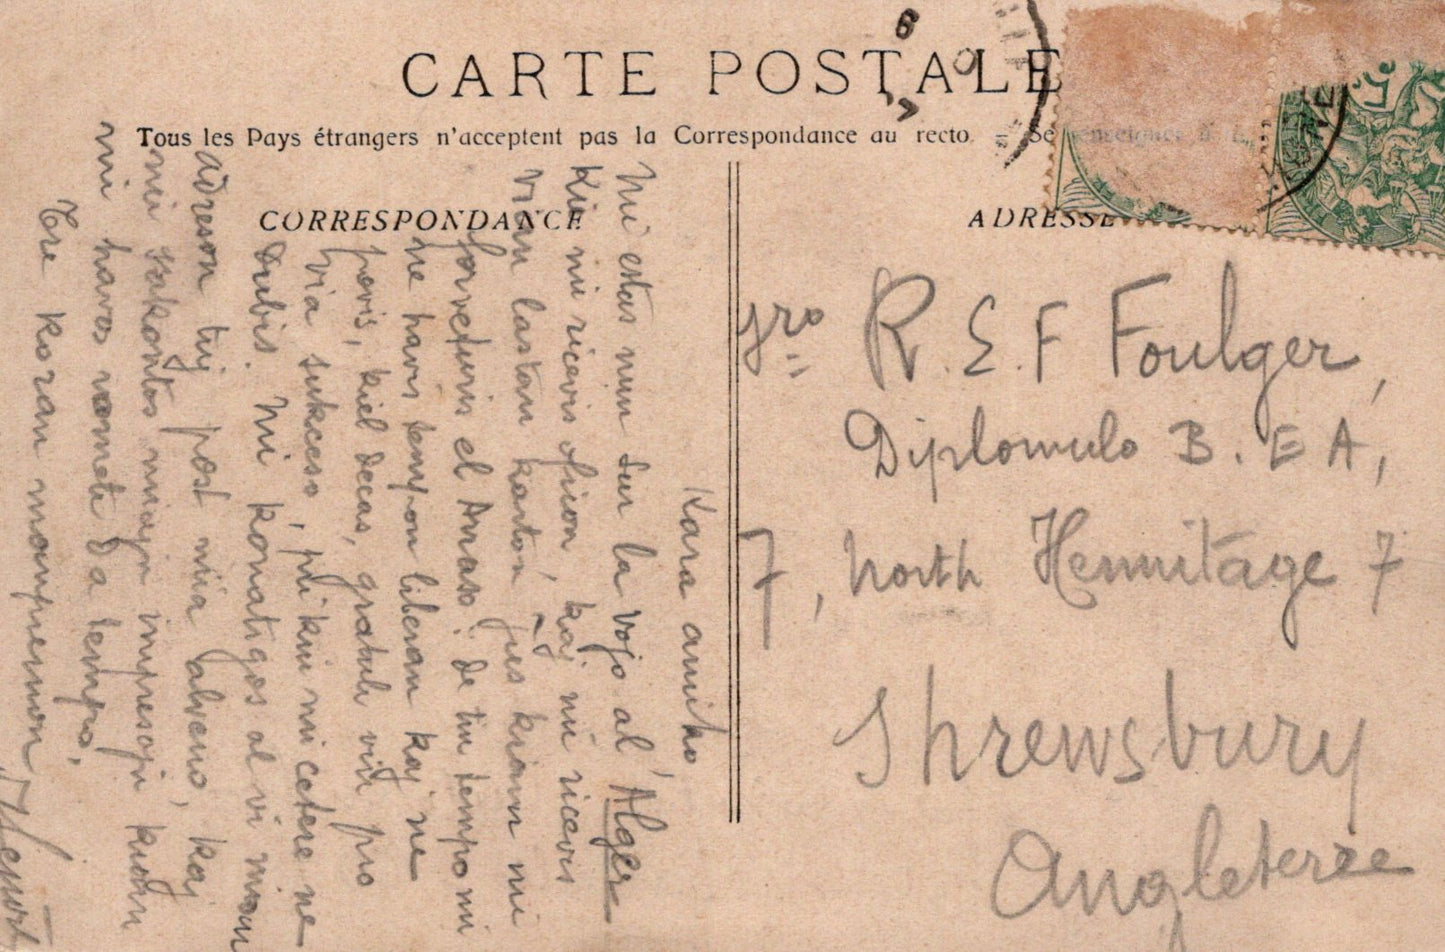 CARTE POSTALE
Tous les Pays étrangers n'acceptent pas la Correspondance au recto. = Se
CORRESPONDANCE
Kara amiko,
Mi estas nun sur la vojo al Alger
Kie mi ricevis oficon, kaj mi ricevis
vian lastan karton ĵus kiam mi
forveturis el Arraso. De tiu tempo mi
ne havis tempon liberan kaj ne
povis, kiel decas, gratuli vin pro
via sukceso, pri kiu mi cetere ne
dubis. Mi konatigos al vi mian
adreson tuj post mia alveno, kaj
mi rakontos miajn impresojn kiam
mi havos momenton da tempo.
Tre koran manpremon
ADRESSE
Sro R. E. F Foulger,
Diplomulo B. E A,
7, North Hermitage 7
Shrewsbury
Angleterre